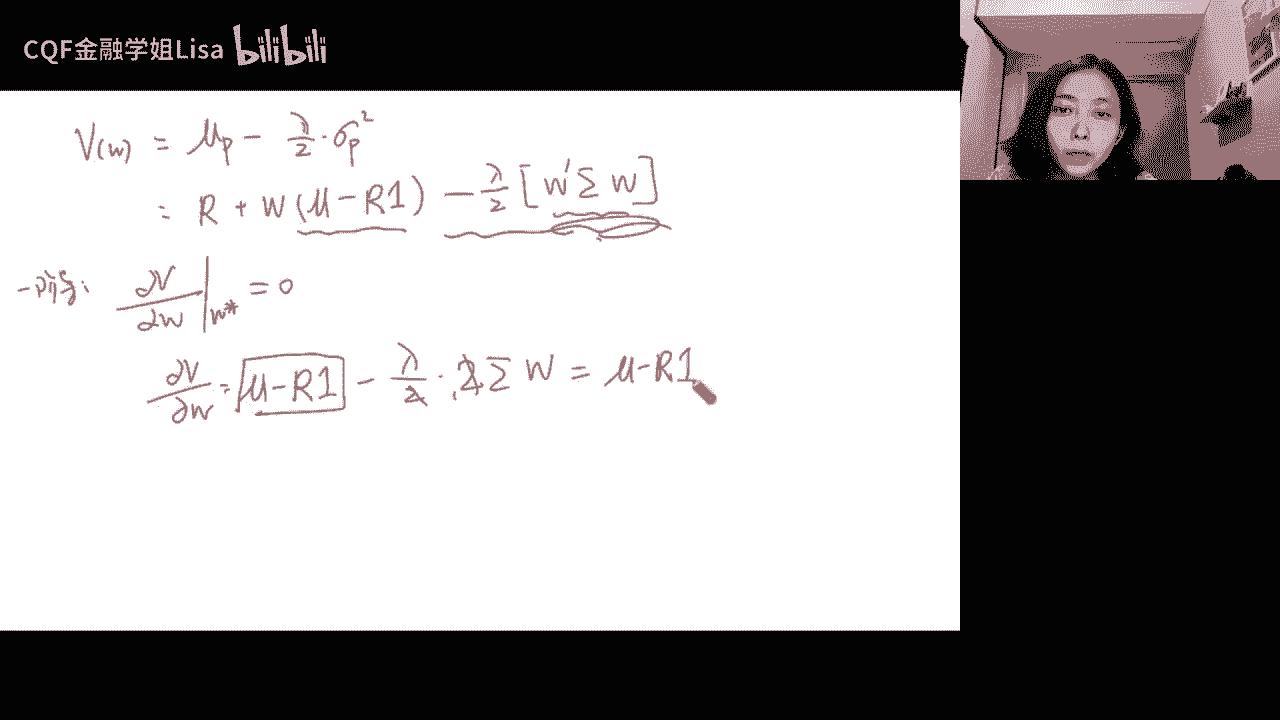 CQF金融学姐Lisa bilibili
V(w) = μp - λ/2 · σp²
= R + W(μ-R1) - λ/2 [w'Σw]
一阶导: ∂V/∂w |w* = 0
∂V/∂w = μ-R1 - λ/2 · 2Σ W = μ-R1